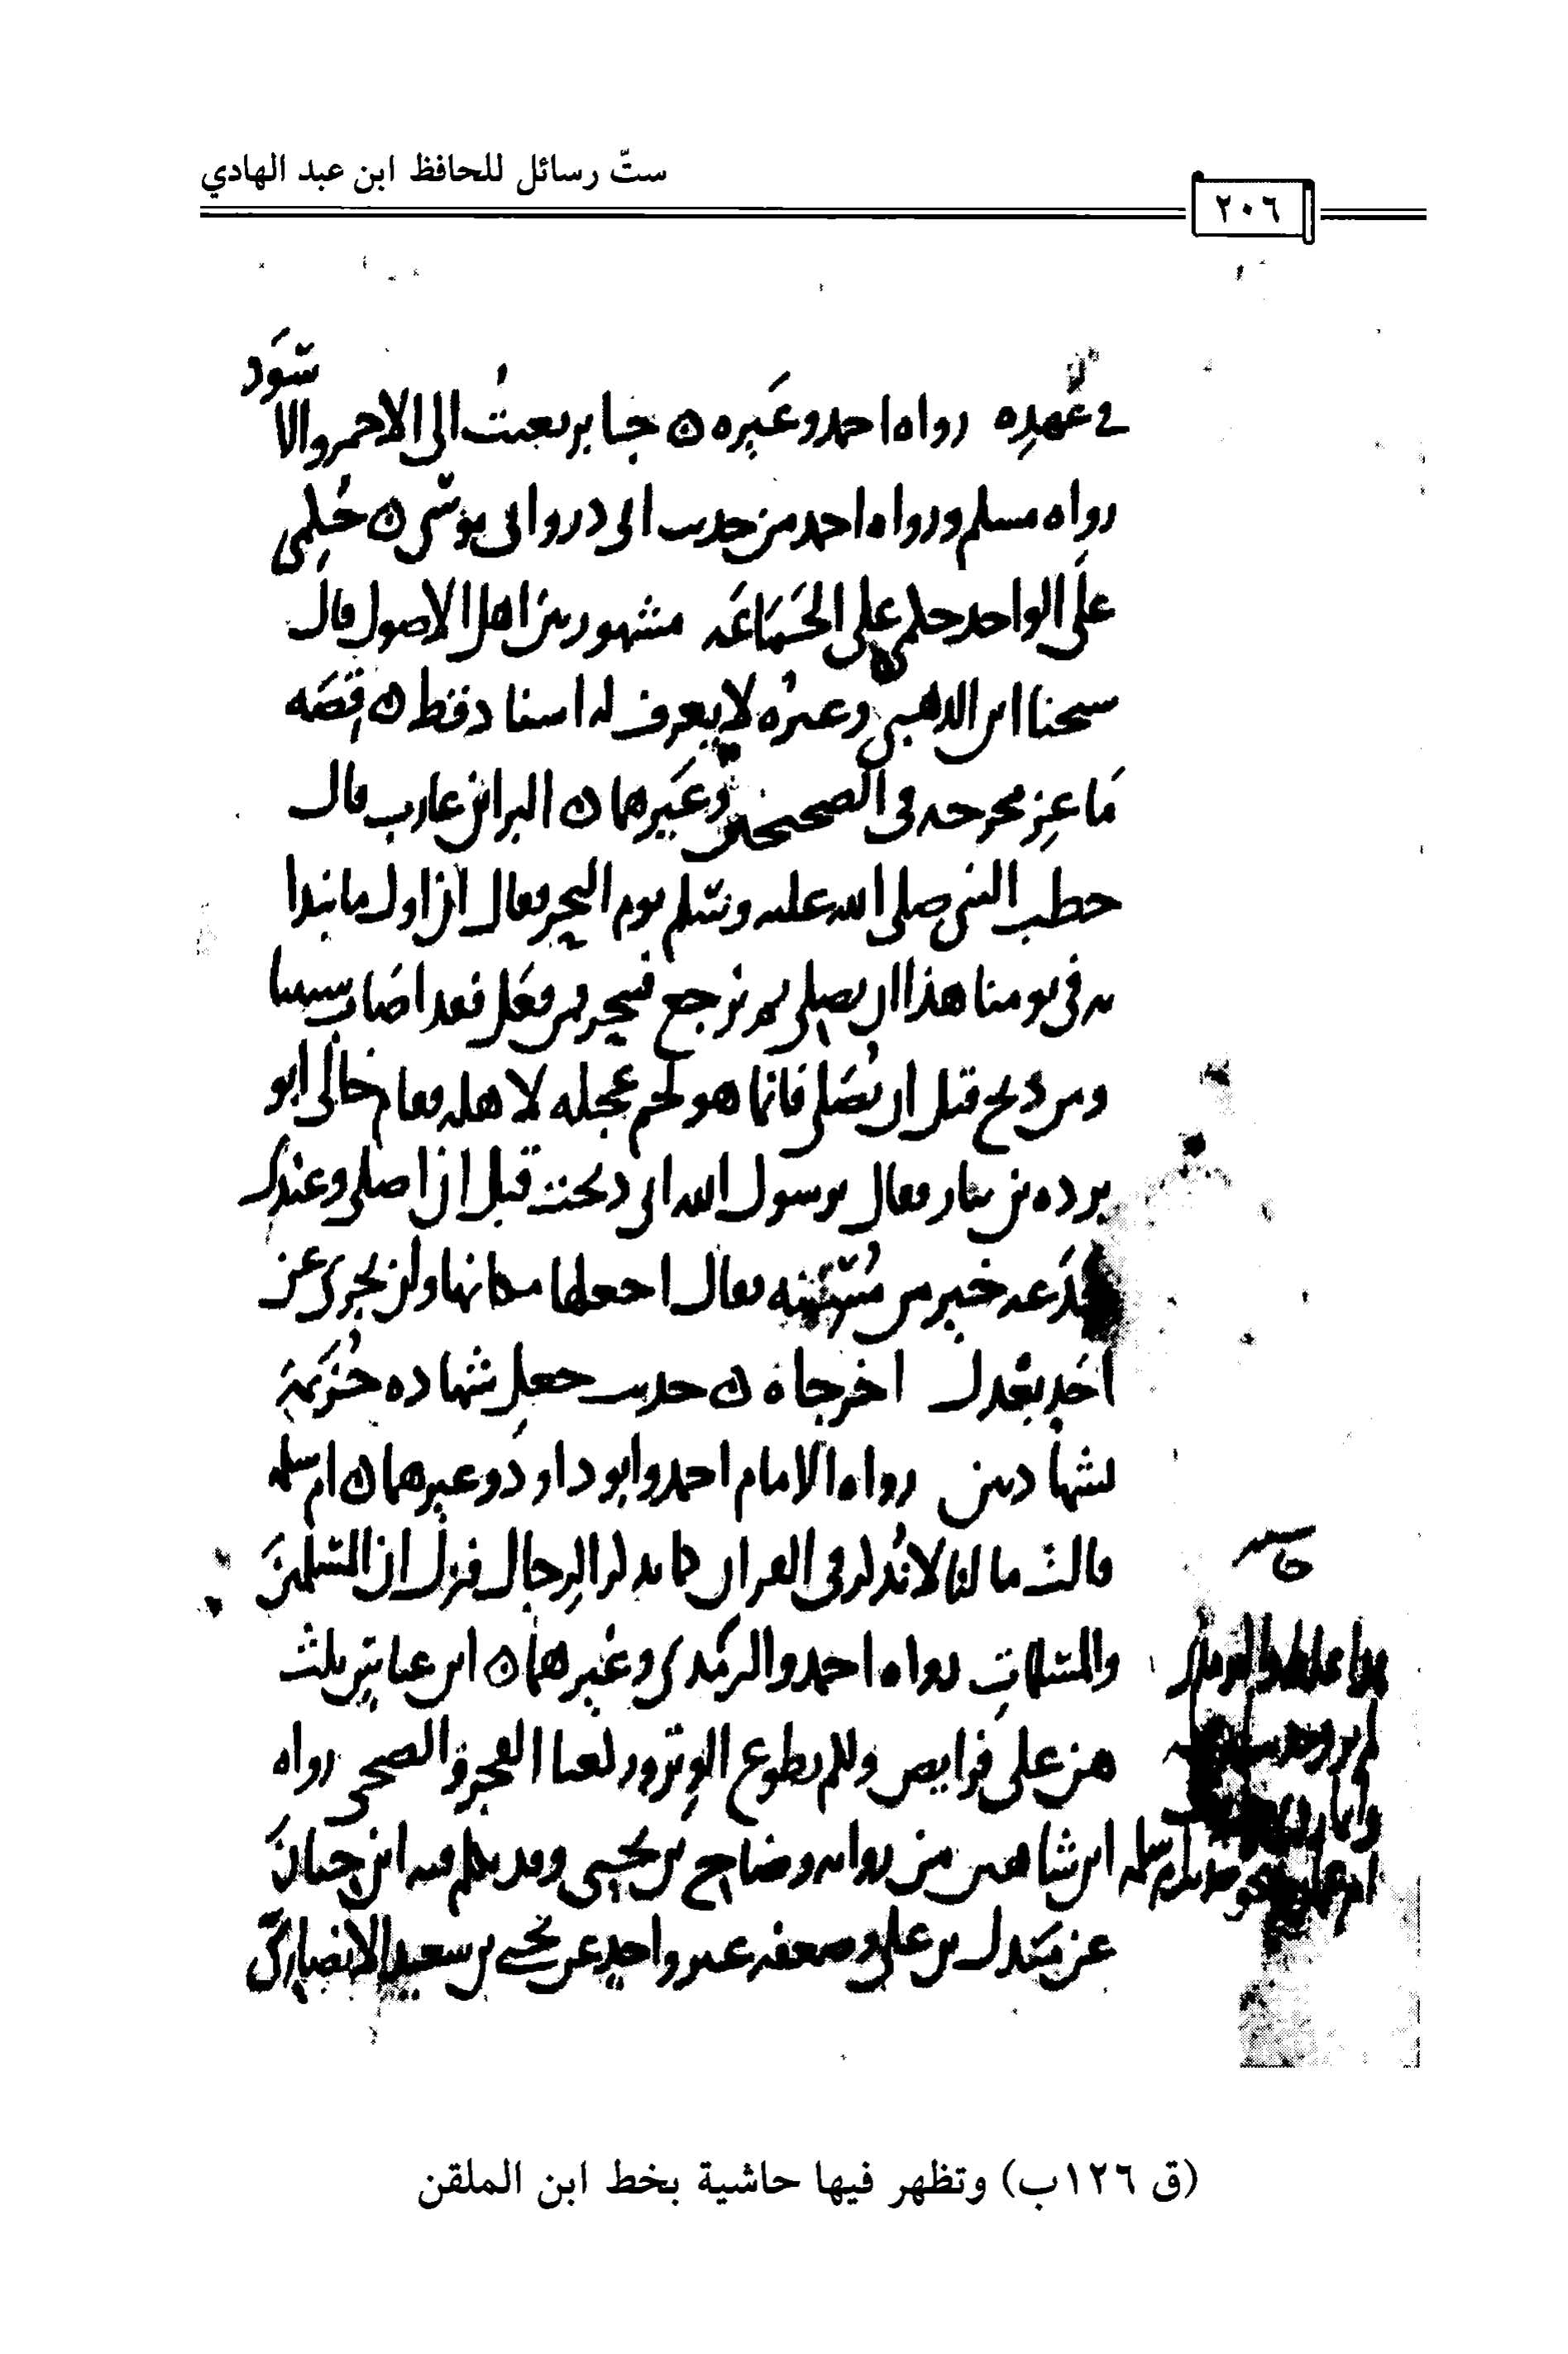 ستّ رسائل للحافظ ابن عبد الهادي
٢٠٦
في عهده رواه احمد وغيره ٥ جابر بعثت الى الاحمر والاسود
رواه مسلم ورواه احمد من حديث ابي ذر وابي موسى ٥ حكمي
على الواحد حكمي على الجماعة مشهور بين اهل الاصول قال
شيخنا ابن الذهبي وغيره لا يعرف له اسناد قط ٥ قصة
ماعز مخرجة في الصحيحين وغيرهما ٥ البراء بن عازب قال
خطب النبي صلى الله عليه وسلم يوم النحر فقال ان اول ما نبدأ
به في يومنا هذا ان نصلي ثم نرجع فننحر فمن فعل فقد اصاب سنتنا
ومن ذبح قبل ان نصلي فانما هو لحم عجله لاهله فقام خالي ابو
بردة بن نيار فقال يرسول الله اني ذبحت قبل ان اصلي وعندي
جذعة خير من مسنة فقال اجعلها مكانها ولن تجزي عن
احد بعدك اخرجاه ٥ حديث جعل شهادة خزيمة
بشهادتين رواه الامام احمد وابو داود وغيرهما ٥ ام سلمة
قالت ما لنا لا نذكر في القران كما يذكر الرجال فنزل ان المسلمين
والمسلمات رواه احمد والترمذي وغيرهما ٥ ابن عباس ثلث
هن علي فرايض ولكم تطوع الوتر وركعتا الفجر والضحى رواه
ابن شاهين من رواية وضاح بن يحيى وقد تكلم فيه ابن حبان
عن مندل بن علي وضعفه غير واحد عن يحيى بن سعيد الانصاري
حاشية
(ق ١٢٦ب) وتظهر فيها حاشية بخط ابن الملقن